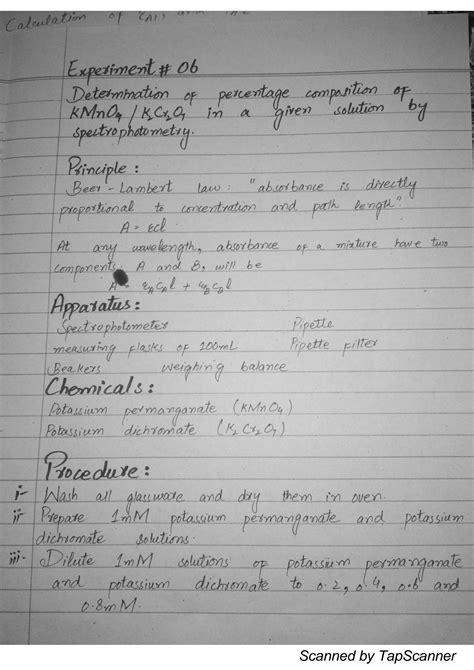 Calculation of
Experiment # 06
Determination of percentage composition of
KMnO4 / K2Cr2O7 in a given solution by
spectrophotometry.
Principle :
Beer - Lambert law : "absorbance is directly
proportional to concentration and path length".
A = εcl
At any wavelength, absorbance of a mixture have two
components A and B, will be
A = εACAl + εBCBl
Apparatus :
Spectrophotometer Pipette
measuring flasks of 100mL Pipette filter
Beakers weighing balance
Chemicals :
Potassium permanganate (KMnO4)
Potassium dichromate (K2Cr2O7)
Procedure :
i- Wash all glassware and dry them in oven.
ii- Prepare 1mM potassium permanganate and potassium
dichromate solutions.
iii- Dilute 1mM solutions of potassium permanganate
and potassium dichromate to 0.2, 0.4, 0.6 and
0.8mM.
Scanned by TapScanner